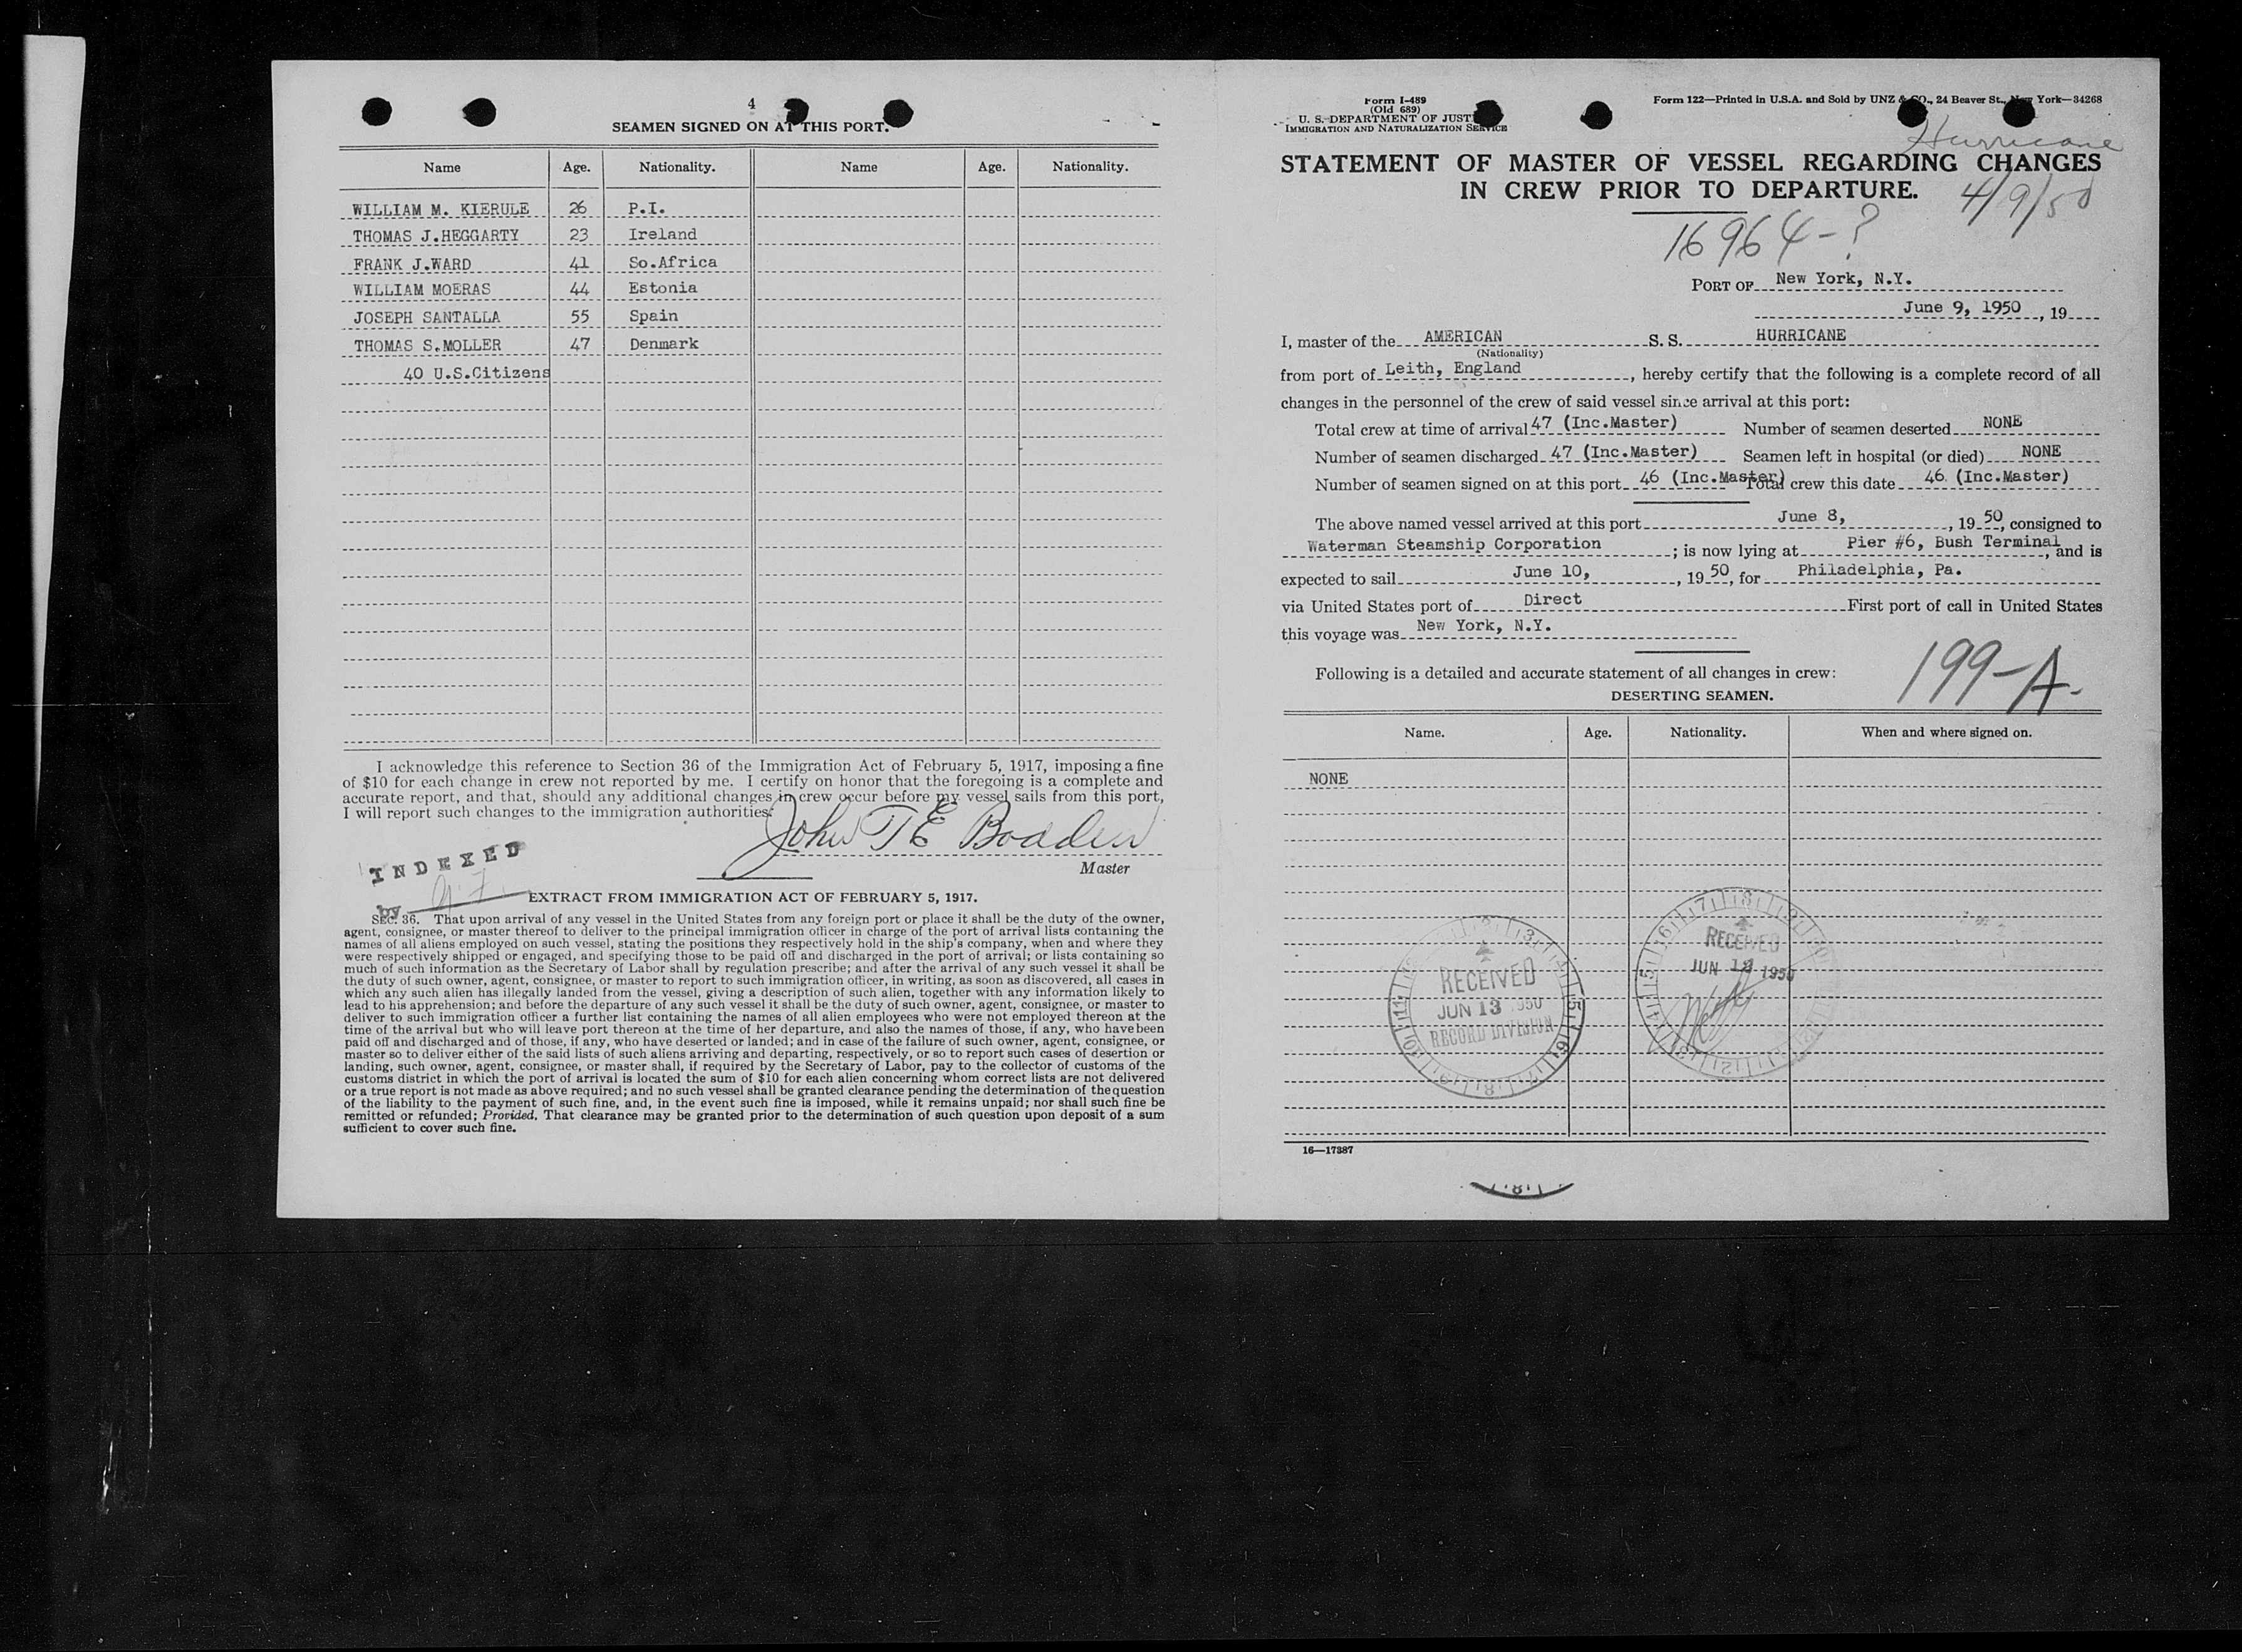 4
SEAMEN SIGNED ON AT THIS PORT.
Name Age. Nationality. Name Age. Nationality.
WILLIAM M. KIERULE 26 P.I.
THOMAS J.HEGGARTY 23 Ireland
FRANK J.WARD 41 So.Africa
WILLIAM MOERAS 44 Estonia
JOSEPH SANTALLA 55 Spain
THOMAS S.MOLLER 47 Denmark
40 U.S.Citizens
I acknowledge this reference to Section 36 of the Immigration Act of February 5, 1917, imposing a fine
of $10 for each change in crew not reported by me. I certify on honor that the foregoing is a complete and
accurate report, and that, should any additional changes in crew occur before my vessel sails from this port,
I will report such changes to the immigration authorities.
John T E Bodden
Master
INDEXED
by
EXTRACT FROM IMMIGRATION ACT OF FEBRUARY 5, 1917.
SEC. 36. That upon arrival of any vessel in the United States from any foreign port or place it shall be the duty of the owner,
agent, consignee, or master thereof to deliver to the principal immigration officer in charge of the port of arrival lists containing the
names of all aliens employed on such vessel, stating the positions they respectively hold in the ship's company, when and where they
were respectively shipped or engaged, and specifying those to be paid off and discharged in the port of arrival; or lists containing so
much of such information as the Secretary of Labor shall by regulation prescribe; and after the arrival of any such vessel it shall be
the duty of such owner, agent, consignee, or master to report to such immigration officer, in writing, as soon as discovered, all cases in
which any such alien has illegally landed from the vessel, giving a description of such alien, together with any information likely to
lead to his apprehension; and before the departure of any such vessel it shall be the duty of such owner, agent, consignee, or master to
deliver to such immigration officer a further list containing the names of all alien employees who were not employed thereon at the
time of the arrival but who will leave port thereon at the time of her departure, and also the names of those, if any, who have been
paid off and discharged and of those, if any, who have deserted or landed; and in case of the failure of such owner, agent, consignee, or
master so to deliver either of the said lists of such aliens arriving and departing, respectively, or so to report such cases of desertion or
landing, such owner, agent, consignee, or master shall, if required by the Secretary of Labor, pay to the collector of customs of the
customs district in which the port of arrival is located the sum of $10 for each alien concerning whom correct lists are not delivered
or a true report is not made as above required; and no such vessel shall be granted clearance pending the determination of the question
of the liability to the payment of such fine, and, in the event such fine is imposed, while it remains unpaid; nor shall such fine be
remitted or refunded; Provided, That clearance may be granted prior to the determination of such question upon deposit of a sum
sufficient to cover such fine.
Form I-489
(Old 689)
U. S. DEPARTMENT OF JUSTICE
IMMIGRATION AND NATURALIZATION SERVICE
Form 122—Printed in U.S.A. and Sold by UNZ & CO., 24 Beaver St., New York—34268
Hurricane
STATEMENT OF MASTER OF VESSEL REGARDING CHANGES
IN CREW PRIOR TO DEPARTURE.
4/9/50
16964-?
PORT OF New York, N.Y.
June 9, 1950, 19
I, master of the AMERICAN S. S. HURRICANE
(Nationality)
from port of Leith, England, hereby certify that the following is a complete record of all
changes in the personnel of the crew of said vessel since arrival at this port:
Total crew at time of arrival 47 (Inc.Master) Number of seamen deserted NONE
Number of seamen discharged 47 (Inc.Master) Seamen left in hospital (or died) NONE
Number of seamen signed on at this port 46 (Inc.Master) Total crew this date 46 (Inc.Master)
The above named vessel arrived at this port June 8, , 19 50, consigned to
Waterman Steamship Corporation ; is now lying at Pier #6, Bush Terminal, and is
expected to sail June 10, , 19 50, for Philadelphia, Pa.
via United States port of Direct First port of call in United States
this voyage was New York, N.Y.
Following is a detailed and accurate statement of all changes in crew:
199-A.
DESERTING SEAMEN.
Name. Age. Nationality. When and where signed on.
NONE
RECEIVED
JUN 13 1950
RECORD DIVISION
RECEIVED
JUN 12 1950
16—17387